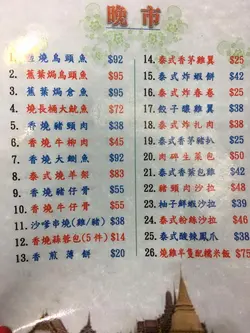 晚市
1. 鹽燒烏頭魚 $92
2. 蕉葉焗烏頭魚 $95
3. 蕉葉焗倉魚 $95
4. 燒長桶大魷魚 $58
5. 香燒豬頸肉 $38
6. 香燒牛柳肉 $38
7. 香燒大鱔 $52
8. 泰式燒羊架 $83
9. 香燒豬仔骨 $55
10. 香燒牛仔骨 $55
11. 沙嗲串燒(雞/豬) $38
12. 香燒蒜蓉包(5件) $14
13. 香煎薄餅 $20
14. 泰式香茅雞翼 $25
15. 泰式炸蝦餅 $42
16. 泰式炸春卷 $25
17. 餃子釀雞翼 $38
18. 泰式炸扎肉 $38
19. 泰式香茅豬 $38
20. 肉碎生菜包 $50
21. 泰式香葉包雞 $42
22. 豬頸肉沙拉 $48
23. 柚子鮮蝦沙拉 $59
24. 泰式粉絲沙拉 $56
25. 泰式酸辣鳳爪 $38
26. 燒雞半隻配糯米飯 $75